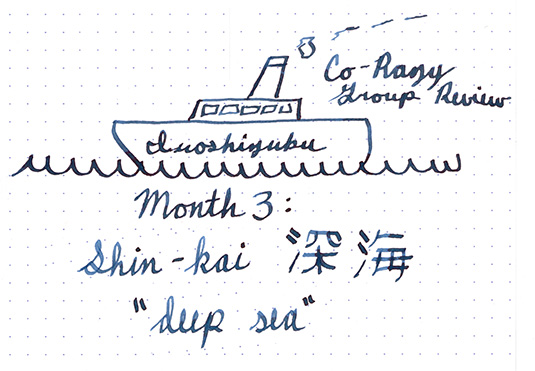 Co-Razy
Group Review
Iroshizuku
Month 3:
Shin-kai 深海
"deep sea"